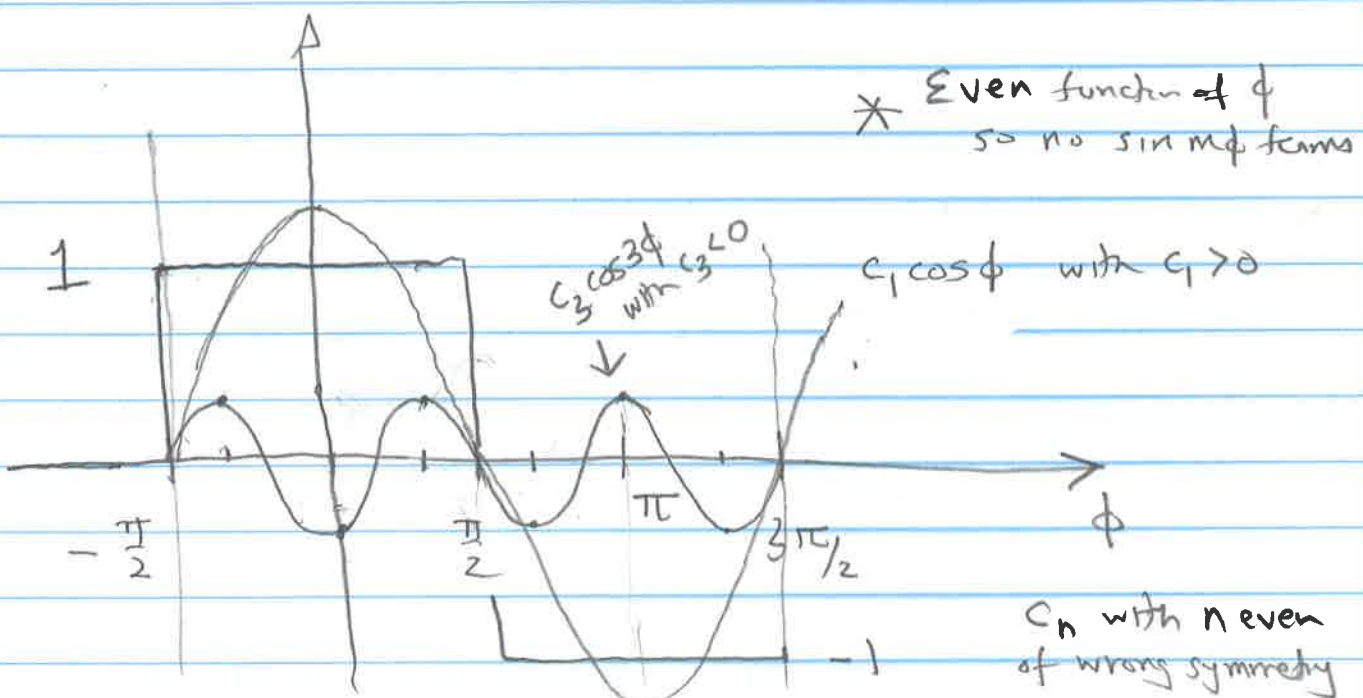 * Even function of ϕ
so no sin mϕ terms
1
C₃ cos 3ϕ
with C₃ < 0
C₁ cos ϕ with C₁ > 0
- π/2
π/2
π
3π/2
ϕ
-1
Cₙ with n even
of wrong symmetry